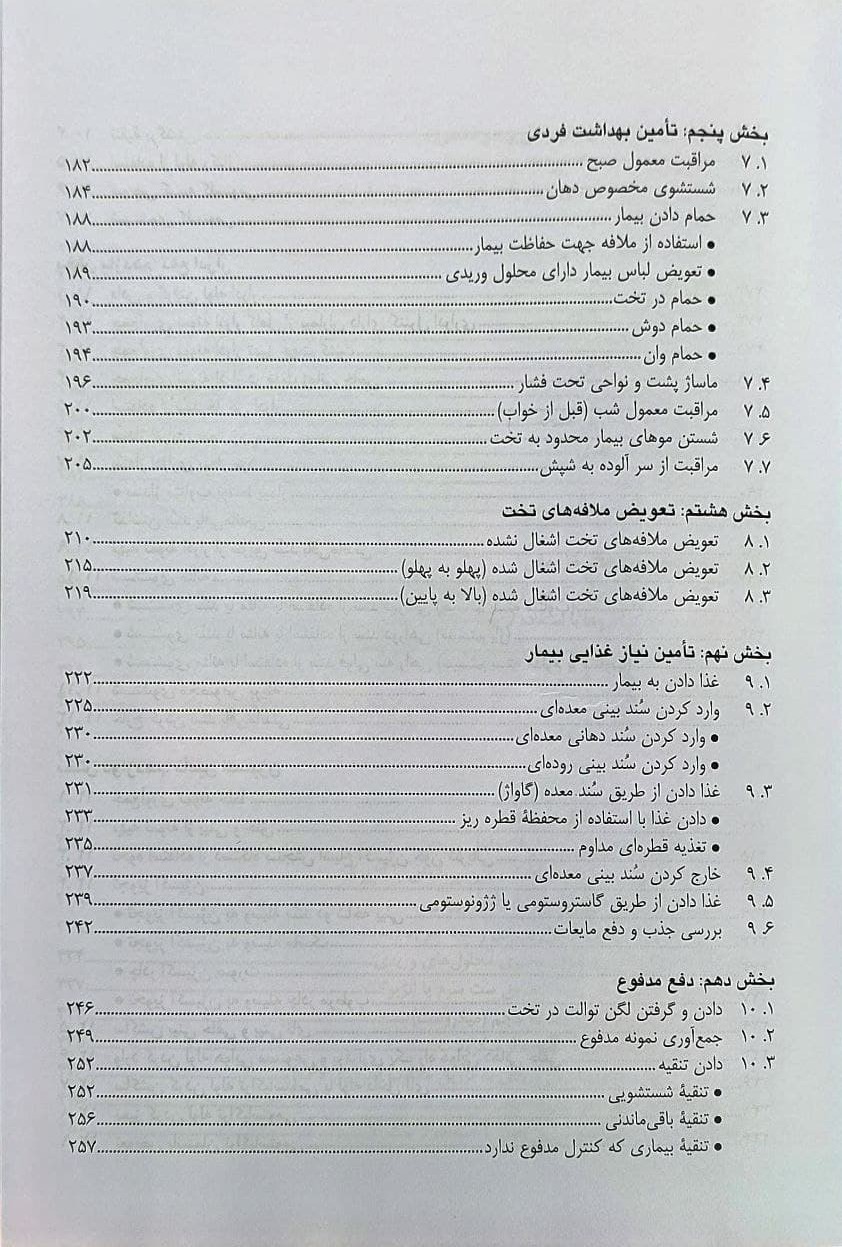 بخش پنجم: تأمین بهداشت فردی
۷.۱ مراقبت معمول صبح ........ ۱۸۲
۷.۲ شستشوی مخصوص دهان ........ ۱۸۴
۷.۳ حمام دادن بیمار ........ ۱۸۸
• استفاده از ملافه جهت حفاظت بیمار ........ ۱۸۸
• تعویض لباس بیمار دارای محلول وریدی ........ ۱۸۹
• حمام در تخت ........ ۱۹۰
• حمام دوش ........ ۱۹۳
• حمام وان ........ ۱۹۴
۷.۴ ماساژ پشت و نواحی تحت فشار ........ ۱۹۶
۷.۵ مراقبت معمول شب (قبل از خواب) ........ ۲۰۰
۷.۶ شستن موهای بیمار محدود به تخت ........ ۲۰۲
۷.۷ مراقبت از سر آلوده به شپش ........ ۲۰۵
بخش هشتم: تعویض ملافه‌های تخت
۸.۱ تعویض ملافه‌های تخت اشغال نشده ........ ۲۱۰
۸.۲ تعویض ملافه‌های تخت اشغال شده (پهلو به پهلو) ........ ۲۱۵
۸.۳ تعویض ملافه‌های تخت اشغال شده (بالا به پایین) ........ ۲۱۹
بخش نهم: تأمین نیاز غذایی بیمار
۹.۱ غذا دادن به بیمار ........ ۲۲۲
۹.۲ وارد کردن سُند بینی معده‌ای ........ ۲۲۵
• وارد کردن سُند دهانی معده‌ای ........ ۲۳۰
• وارد کردن سُند بینی روده‌ای ........ ۲۳۰
۹.۳ غذا دادن از طریق سُند معده (گاواژ) ........ ۲۳۱
• دادن غذا با استفاده از محفظهٔ قطره ریز ........ ۲۳۳
• تغذیه قطره‌ای مداوم ........ ۲۳۵
۹.۴ خارج کردن سُند بینی معده‌ای ........ ۲۳۷
۹.۵ غذا دادن از طریق گاستروستومی یا ژژونوستومی ........ ۲۳۹
۹.۶ بررسی جذب و دفع مایعات ........ ۲۴۲
بخش دهم: دفع مدفوع
۱۰.۱ دادن و گرفتن لگن توالت در تخت ........ ۲۴۶
۱۰.۲ جمع‌آوری نمونه مدفوع ........ ۲۴۹
۱۰.۳ دادن تنقیه ........ ۲۵۲
• تنقیهٔ شستشویی ........ ۲۵۲
• تنقیهٔ باقی‌ماندنی ........ ۲۵۶
• تنقیهٔ بیماری که کنترل مدفوع ندارد ........ ۲۵۷